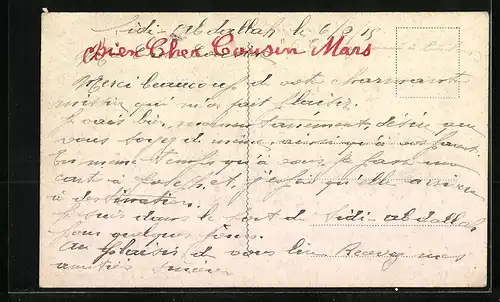 Sidi-Abdallah le 6/3/15
Bien Cher Cousin Mars
Merci beaucoup de votre charmante
missive qui m'a fait plaisir.
vais bien, momentanément, désire que
vous soyez de même, ainsi qu'à vos
En même temps qu'à vous je fasse une
carte à Joseph, et, j'espère qu'elle arrivera
à destination.
suis dans le port de Sidi-abdallah
pour quelques jours.
Au plaisir de vous lire Recevez mes
amitiés sincères